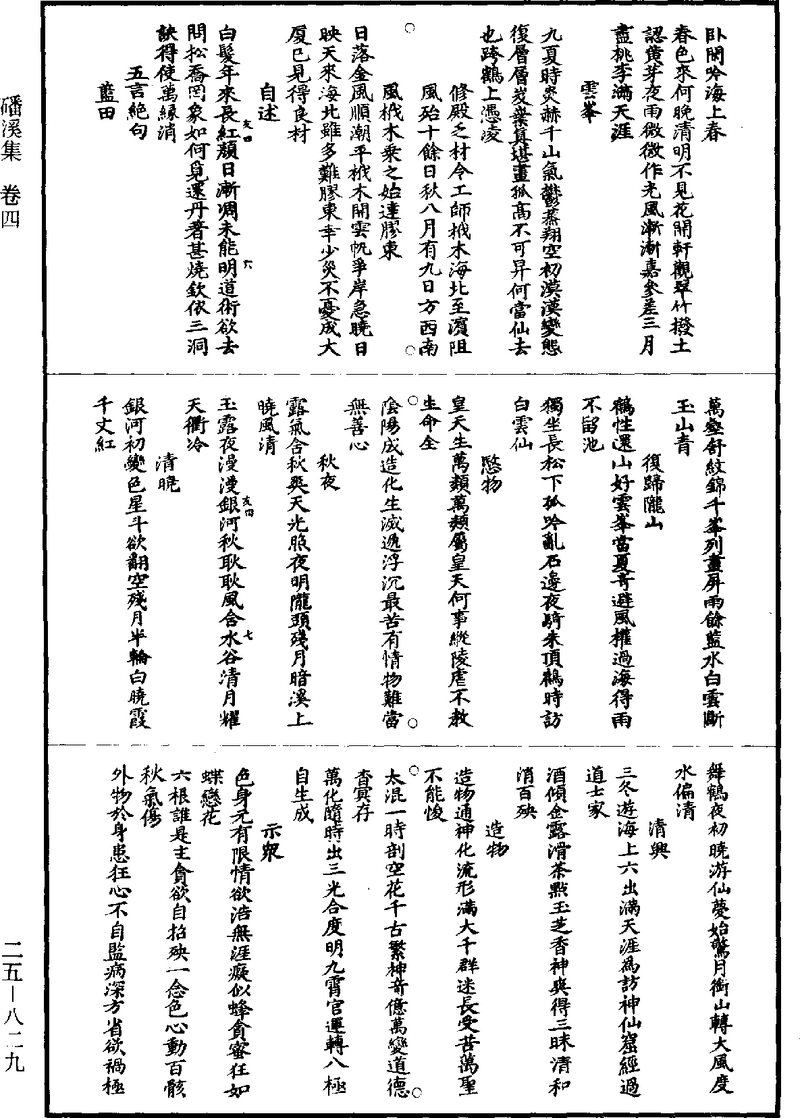 臥聞吟海上春
春色來何晚清明不見花開軒觀翠竹撥土
認黃芽夜雨微微作光風漸漸嘉參差三月
盡桃李滿天涯
雲峯
九夏時炎赫千山氣鬱蒸翔空初漠漠變態
復層層岌嶪真堪畫孤高不可昇何當仙去
也跨鶴上憑凌
修殿之材令工師栰木海北至濱阻
風殆十餘日秋八月有九日方西南
風栰木乘之始達膠東
日落金風順潮平栰木開雲帆爭岸急曉日
映天來海北雖多難膠東幸少災不憂成大
廈已見得良材
自述
白髮年來長紅顏日漸凋未能明道術欲去
問松喬罔象如何覓還丹著甚燒欽依三洞
訣得使萬緣消
五言絕句
藍田
萬壑舒紋錦千峯列畫屏雨餘藍水白雲斷
玉山青
復歸隴山
鶴性還山好雲峯當夏奇避風權過海得雨
不留池
獨坐長松下孤吟亂石邊夜騎朱頂鶴時訪
白雲仙
愍物
皇天生萬類萬類屬皇天何事縱陵虐不教
生命全
陰陽成造化生滅遞浮沉最苦有情物難當
無善心
秋夜
露氣含秋爽天光照夜明隴頭殘月暗溪上
曉風清
玉露夜漫漫銀河秋耿耿風含水谷清月耀
天衢冷
清曉
銀河初變色星斗欲翻空殘月半輪白曉霞
千丈紅
舞鶴夜初曉游仙夢始驚月銜山轉大風度
水偏清
清興
三冬遊海上六出滿天涯為訪神仙窟經過
道士家
酒傾金露滑茶點玉芝香神爽得三昧清和
消百殃
造物
造物通神化流形滿大千群迷長受苦萬聖
不能悛
太混一時剖空花千古繁神奇億萬變道德
杳冥存
萬化隨時出三光合度明九霄官運轉八極
自生成
示眾
色身元有限情欲浩無涯癡似蜂貪蜜狂如
蝶戀花
六根誰是主貪欲自招殃一念色心動百骸
秋氣傷
外物於身患狂心不自監病深方省欲禍極
友四
六
友四
七
磻溪集 卷四
二五—八二九